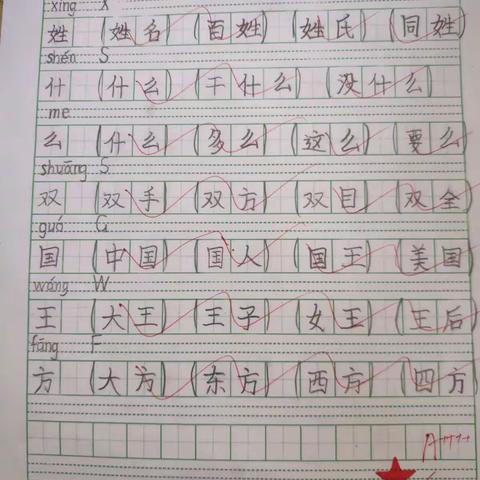 xìng X
姓 (姓名) (百姓) (姓氏) (同姓)
shén S
什 (什么) (干什么) (没什么)
me
么 (什么) (多么) (这么) (要么)
shuāng S
双 (双手) (双方) (双目) (双全)
guó G
国 (中国) (国人) (国王) (美国)
wáng W
王 (大王) (王子) (女王) (王后)
fāng F
方 (大方) (东方) (西方) (四方)
A++++